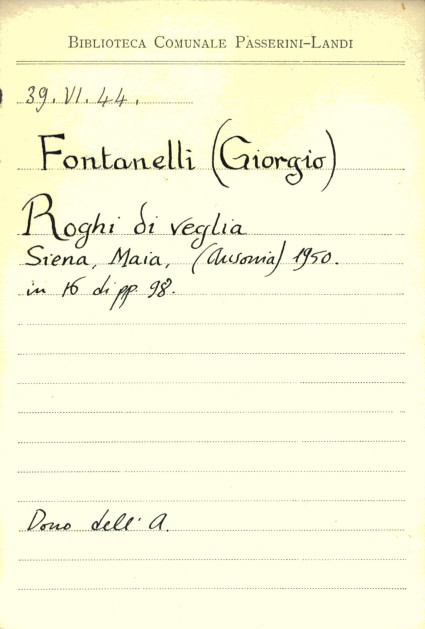 BIBLIOTECA COMUNALE PASSERINI-LANDI
39. VI. 44.
Fontanelli (Giorgio)
Roghi di veglia
Siena, Maia, (Ausonia) 1950.
in 16 di pp. 98.
Dono dell' A.